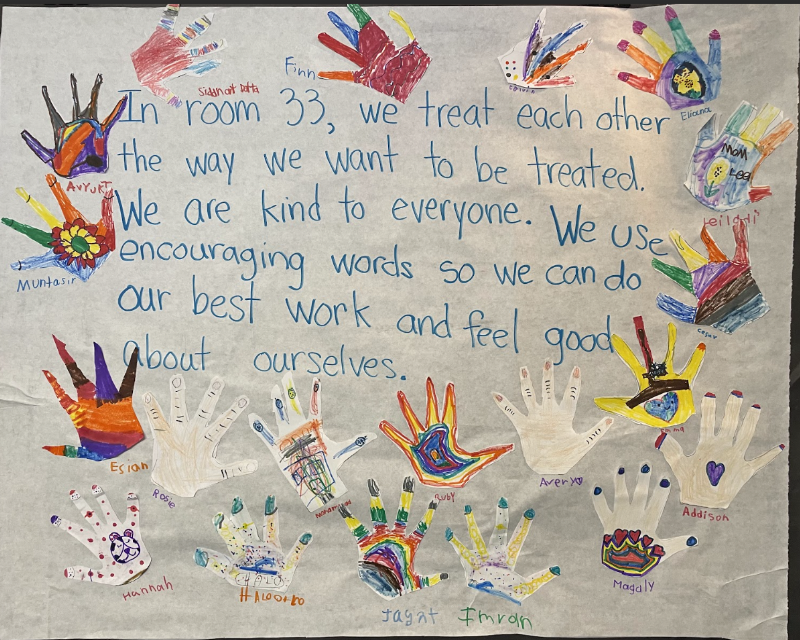 Finn
Eliana
In room 33, we treat each other
the way we want to be treated.
We are kind to everyone. We use
encouraging words so we can do
our best work and feel good
about ourselves.
MOM
Avyukt
Muntasir
Esian
Rosie
Ruby
Avery
Addison
Hannah
Magaly
Jagat
Imran